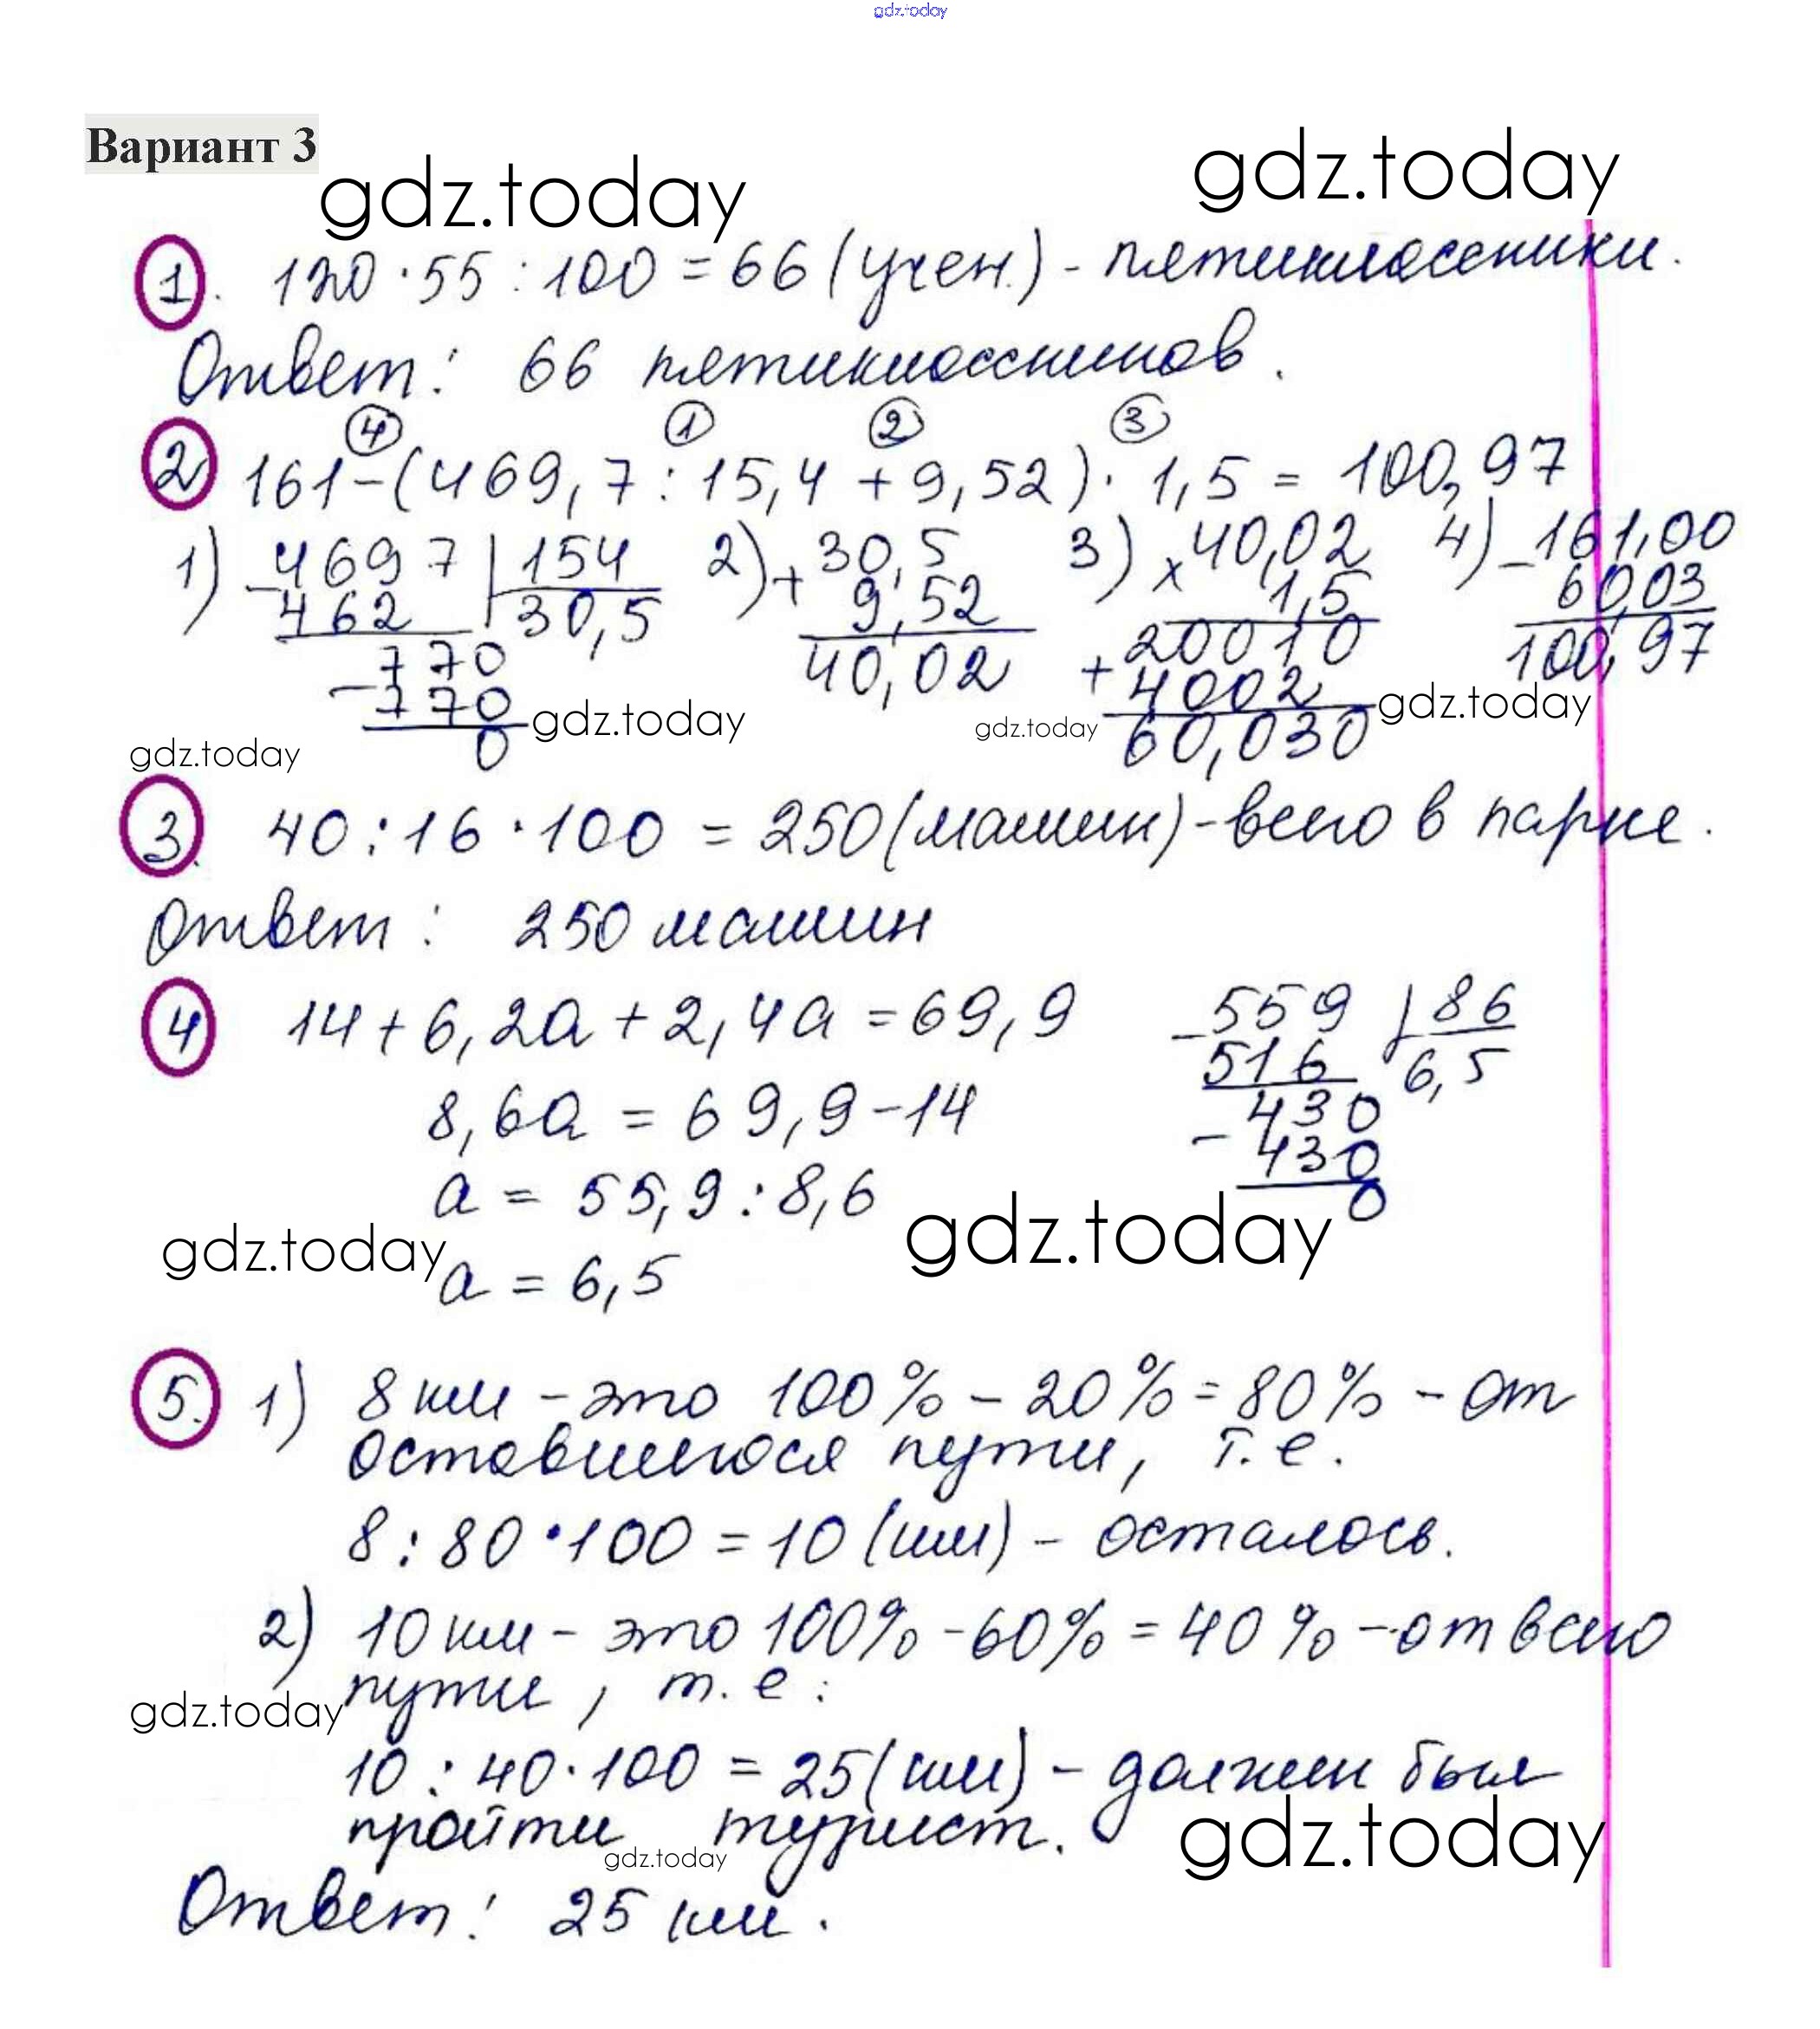 gdz.today
Вариант 3
gdz.today gdz.today
1. 120 · 55 : 100 = 66 (учен.) - пятиклассники.
Ответ: 66 пятиклассников.
4 1 2 3
2 161 - (469,7 : 15,4 + 9,52) · 1,5 = 100,97
1) - 4697 | 154 2) + 30,5 3) x 40,02 4) - 161,00
462 30,5 9,52 1,5 60,03
770 40,02 + 20010 100,97
- 770 gdz.today gdz.today 4002 gdz.today
gdz.today 0 60,030
3. 40 : 16 · 100 = 250 (машин) - всего в парке.
Ответ: 250 машин
4 14 + 6,2a + 2,4a = 69,9 - 559 | 86
516 6,5
8,6a = 69,9 - 14 430
- 430
a = 55,9 : 8,6 0
gdz.today gdz.today
a = 6,5
5. 1) 8 км - это 100% - 20% = 80% - от
оставшегося пути, т.е.
8 : 80 · 100 = 10 (км) - осталось.
2) 10 км - это 100% - 60% = 40% - от всего
gdz.today пути, т.е.
10 : 40 · 100 = 25 (км) - должен был
пройти турист.
gdz.today gdz.today
Ответ: 25 км.